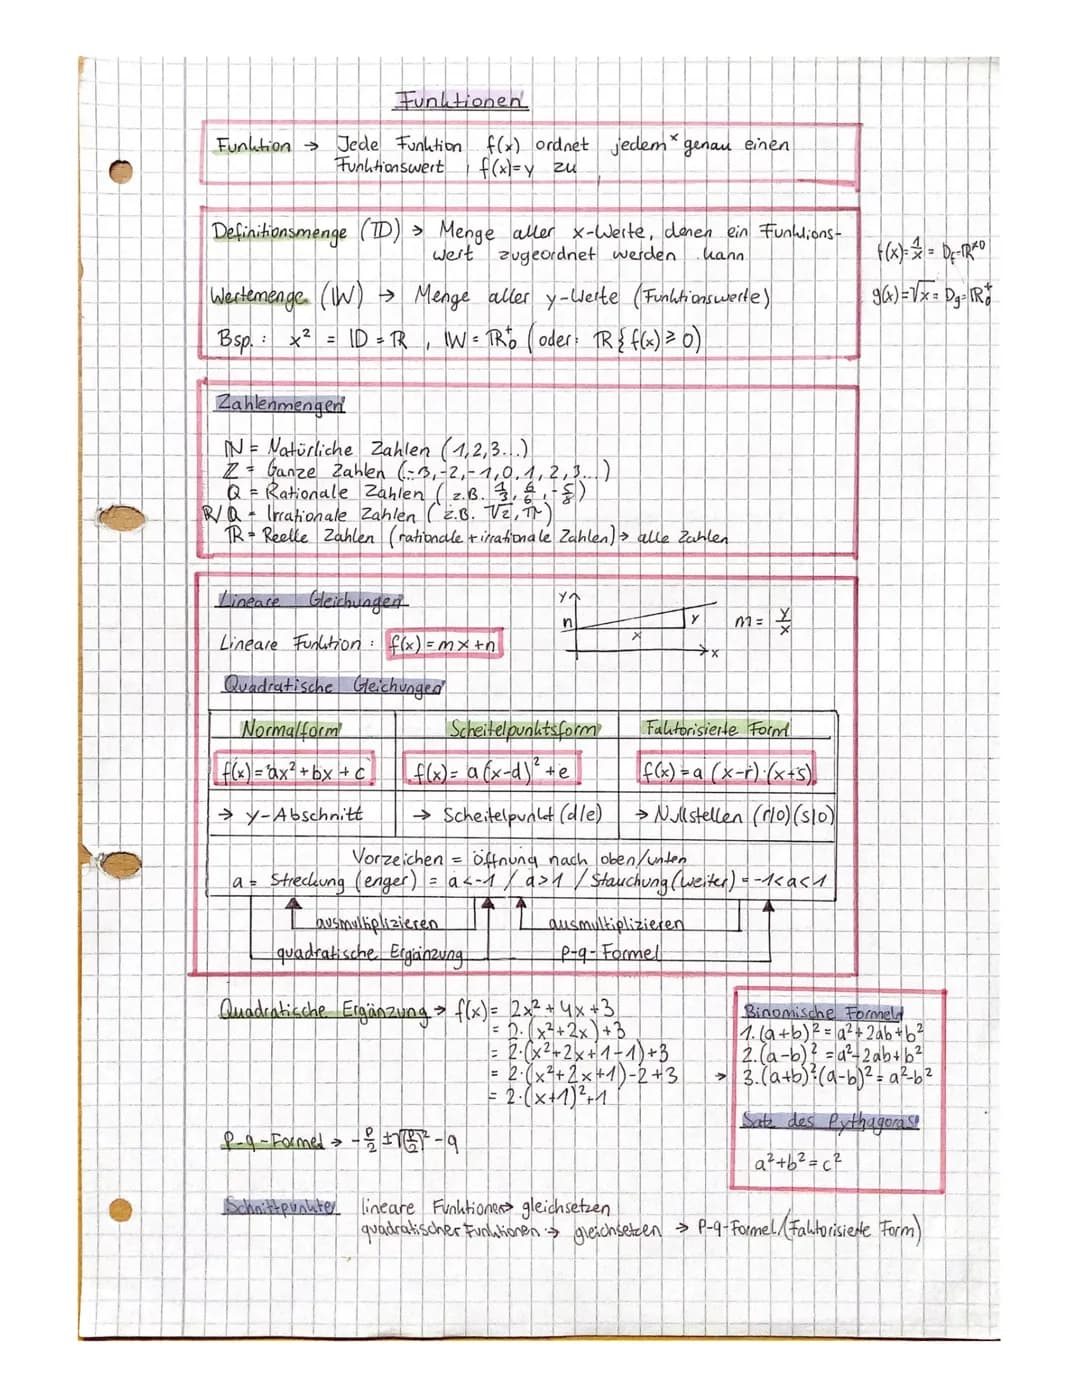 Funktionen
Funktion → Jede Funktion f(x) ordnet jedem x genau einen
Funktionswert f(x)=y zu
Definitionsmenge (ID) → Menge aller x-Werte, denen ein Funktions-
wert zugeordnet werden kann
Wertemenge (W) → Menge aller y-Werte (Funktionswerte)
Bsp.: x² = ID = ℝ, W = ℝ₀⁺ (oder: ℝ{f(x) ≥ 0)
f(x)=1/x = Df=ℝ≠0
g(x)=√x = Dg=ℝ₀⁺
Zahlenmengen
ℕ = Natürliche Zahlen (1,2,3...)
Z = Ganze Zahlen (-3,-2,-1,0,1,2,3...)
Q = Rationale Zahlen (z.B. 1/3, 6/6, -5/8)
R/Q = Irrationale Zahlen (z.B. √2, π)
ℝ = Reelle Zahlen (rationale + irrationale Zahlen) → alle Zahlen
Lineare Gleichungen
Lineare Funktion: f(x)=mx+n
y
n
x
y
x
m = y/x
Quadratische Gleichungen
Normalform Scheitelpunktsform Faktorisierte Form
f(x)=ax²+bx+c f(x)=a(x-d)²+e f(x)=a(x-r)·(x+s)
→ y-Abschnitt → Scheitelpunkt (d/e) → Nullstellen (r|0)(s|0)
Vorzeichen = Öffnung nach oben/unten
a = Streckung (enger) = a<-1 / a>1 / Stauchung (weiter) = -1<a<1
ausmultiplizieren ausmultiplizieren
quadratische Ergänzung p-q-Formel
Quadratische Ergänzung → f(x)= 2x²+4x+3
= 2·(x²+2x)+3
= 2·(x²+2x+1-1)+3
= 2·(x²+2x+1)-2+3
= 2·(x+1)²+1
P-q-Formel → -p/2 ±√(p/2)² -q
Binomische Formel
1.(a+b)²=a²+2ab+b²
2.(a-b)²=a²-2ab+b²
→ 3.(a+b)²·(a-b)²=a²-b²
Satz des Pythagoras
a²+b²=c²
Schnittpunkte lineare Funktionen → gleichsetzen
quadratischer Funktionen → gleichsetzen → P-q-Formel/(Faktorisierte Form)